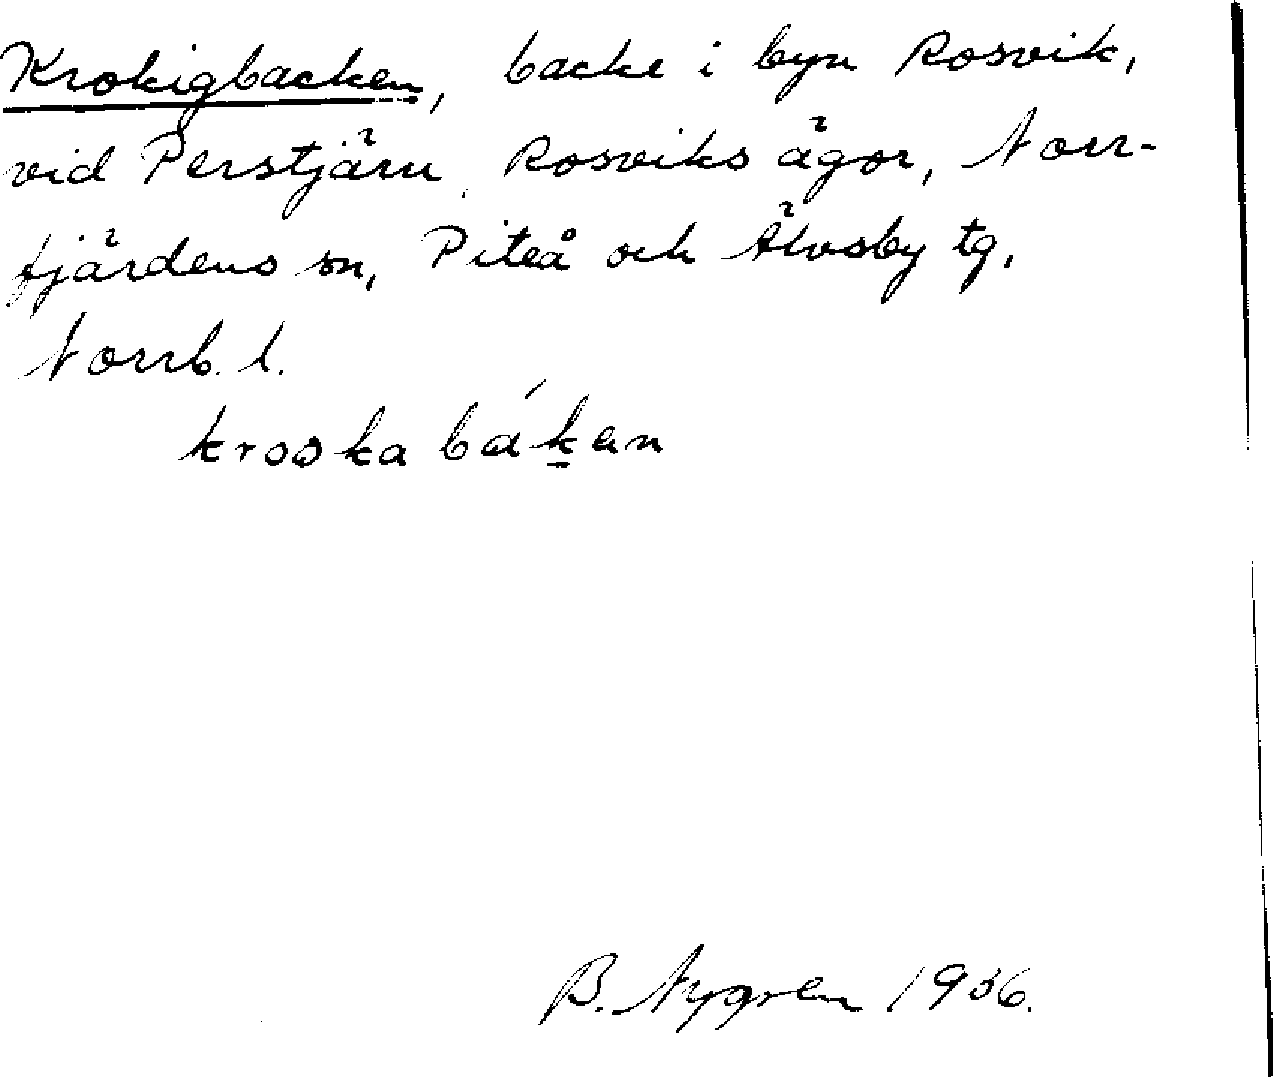 Krokigbacken, backe i byn Rosvik,
vid Perstjärn, Rosviks ägor, Norr-
fjärdens sn, Piteå och Älvsby tg,
Norrb. l.
krooka bákan
B. Nygren 1936.